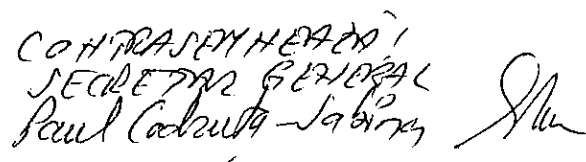 CONTRASEMNEAZĂ,
SECRETAR GENERAL
Paul Codruța-Sabina